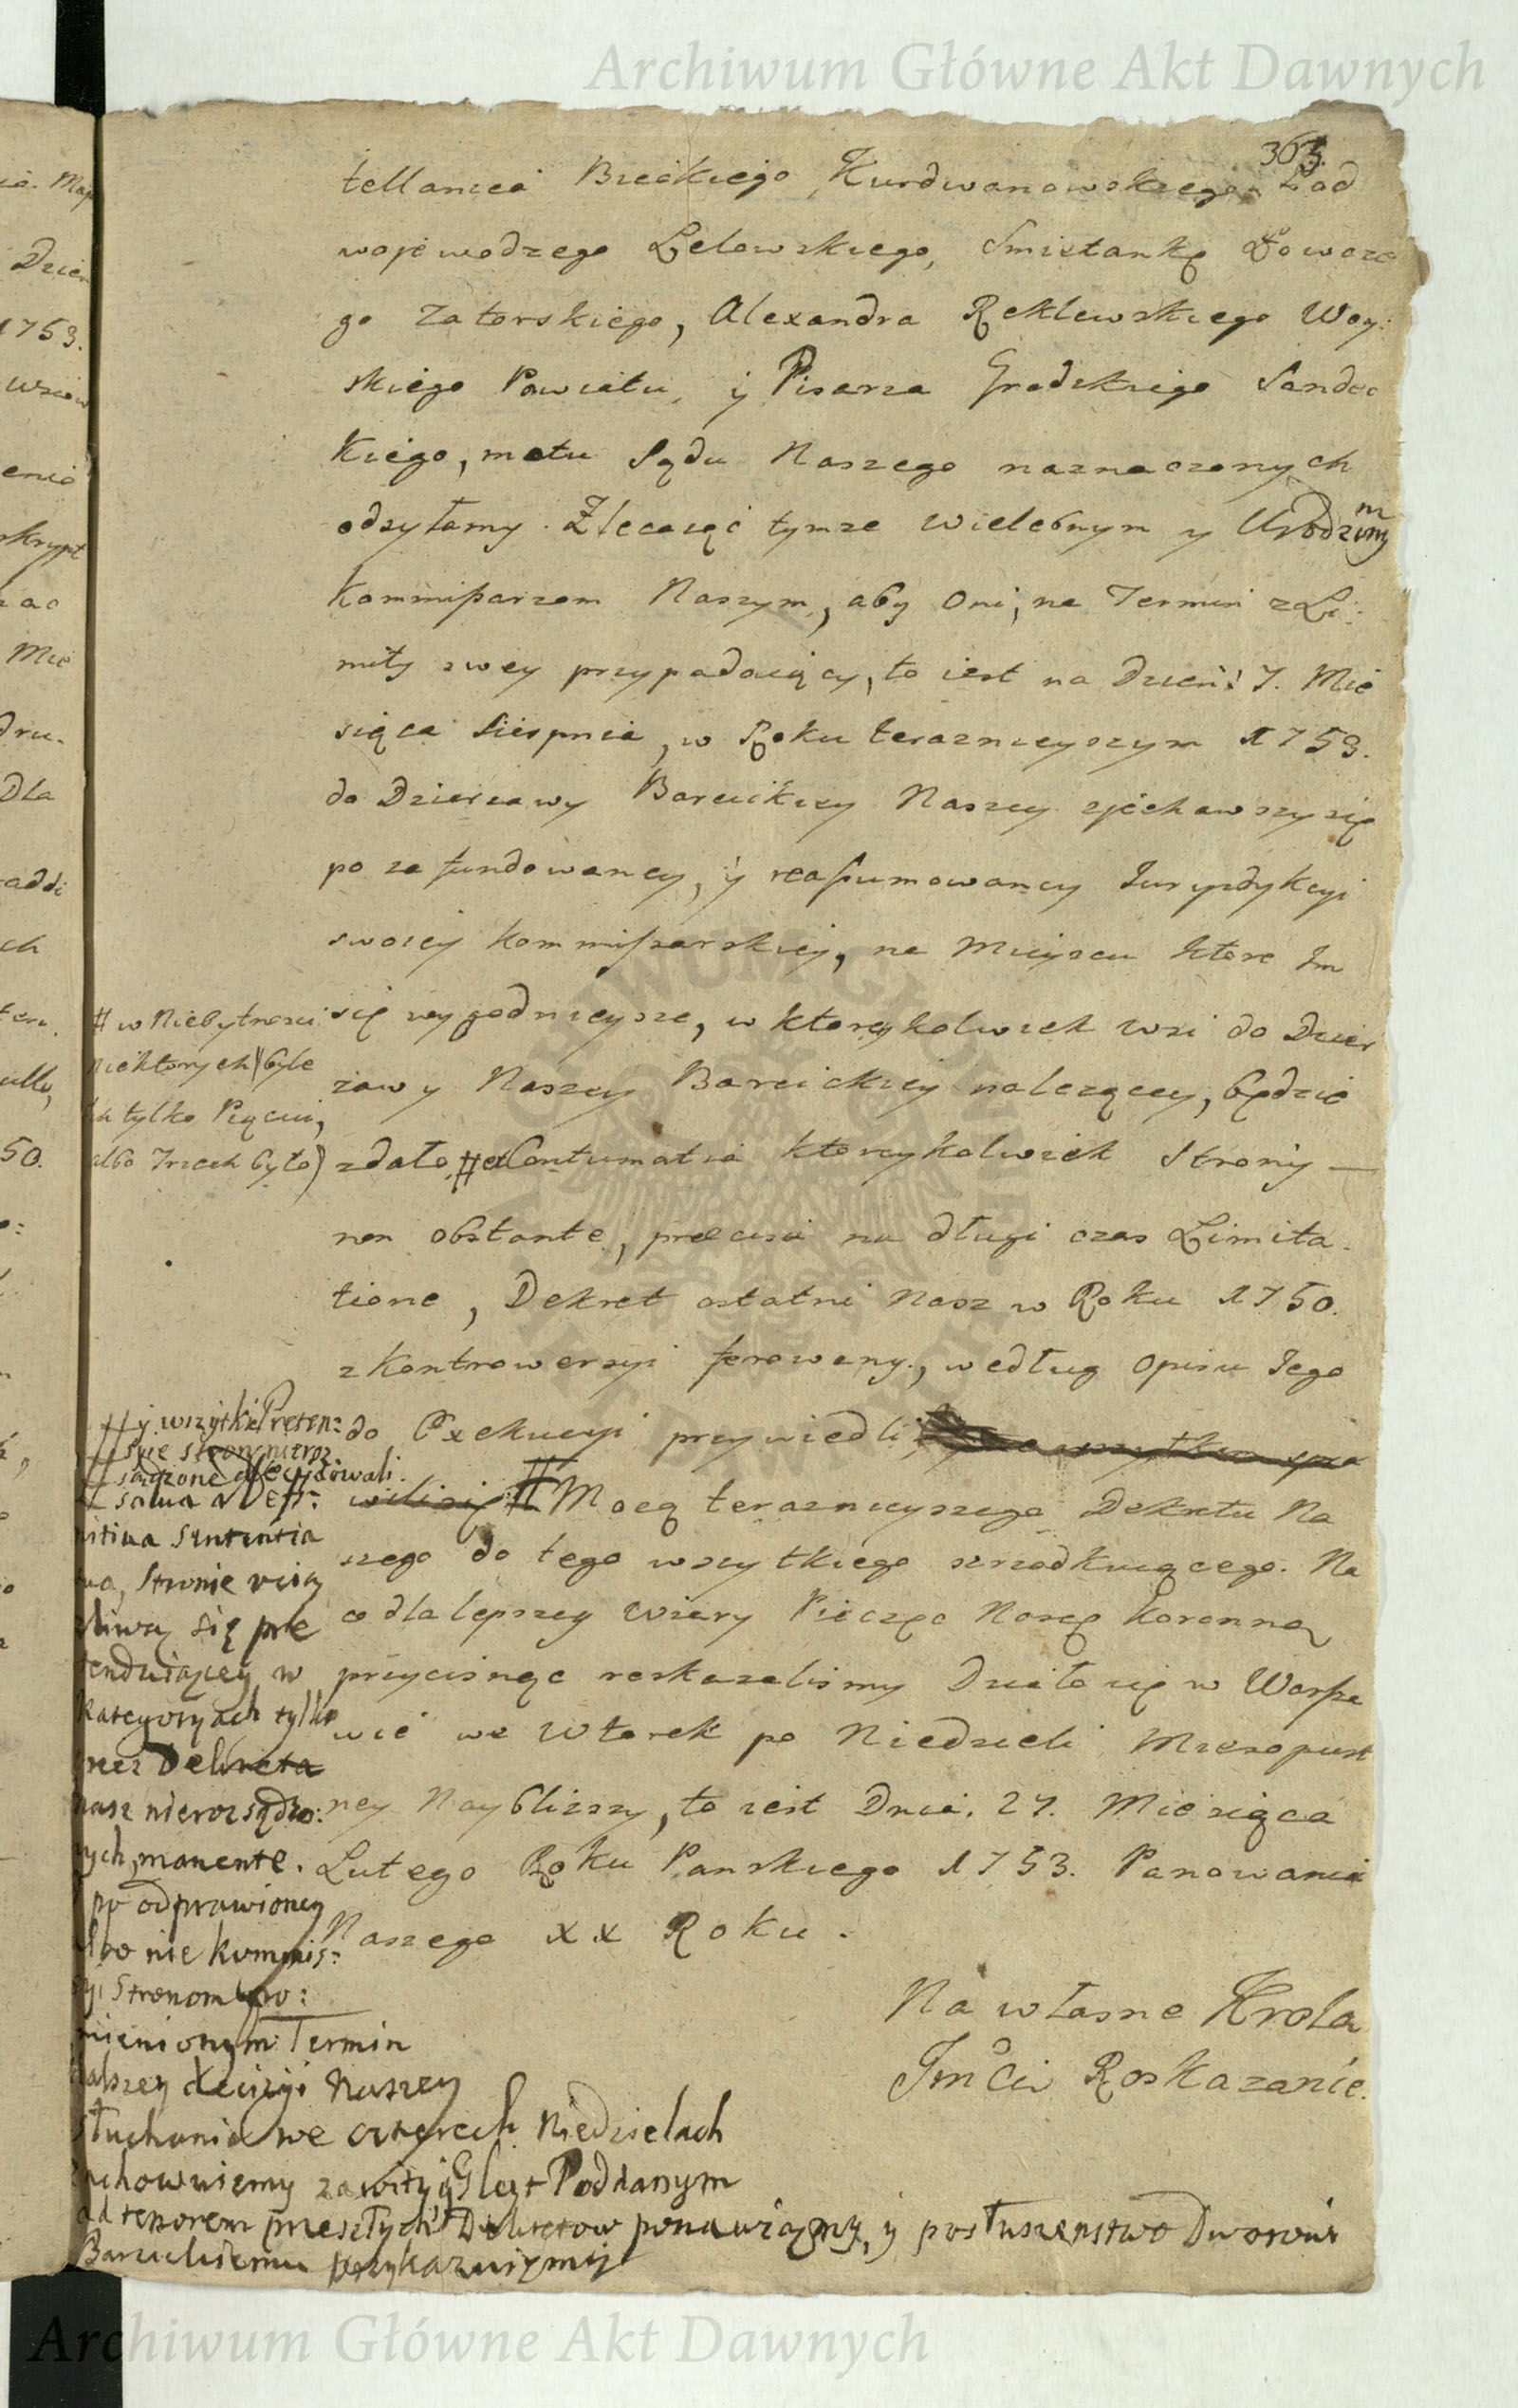 Archiwum Główne Akt Dawnych
363.
tellanica Bieckiego Kurdwanowskiego Pod
wojewodzego Lelowskiego, Smietankę Łowcze
go Zatorskiego, Alexandra Reklewskiego Woy:
skiego Powiatu, y Pisarza Grodzkiego Sandec
kiego, motu Sądu Naszego naznaczonych
odsyłamy. Zlecaiąc tymze Wielebnym y Urodzonym
Kommißarzom Naszym, aby Oni, na Termin z Li:
mity swey przypadaiący, to iest na Dzień 7. Mie
siąca Sierpnia, w Roku teraznieyszym 1753.
do Dzierzawy Barcickiey Naszey zjechawszy się
po zafundowaney, y reassumowaney Juryzdykcyi
swoiey Kommissarskiey, na Mieyscu ktore Im
się wygodnieysze, w ktoreykolwiek wsi do Dzier
zawy Naszey Barcickiey nalezącey, będzie
zdało # et Contumatia ktoreykolwiek Strony —
non obstante, præcisa na długi czas Limita-
tione, Dekret ostatni Nasz w Roku 1750.
z Kontrowersyi ferowany, według Opisu Jego
do Exekucyi przywiedli,
# Mocą teraznieyszego Dekretu Na
szego do tego wszytkiego szrzodkuiącego. Na
co dla lepszey Wiary Pieczęc Naszą Koronną
przycisnąc roskazalismy Działo się w Warsza
wie we Wtorek po Niedzieli Mięsopust
ney Naybliższy, to iest Dnia. 27. Miesiąca
Lutego Roku Panskiego 1753. Panowania
Naszego XX Roku.
Na własne Krola
Jmci Roskazanie.
# w Niebytnosci
niektorych byle
tylko Pięciu,
albo Trzech było)
# y wszytkie Preten:
sye stron nieroz
sądzone decydowali.
salva a Defi:
nitiva Sententia
Stronie uciąz
liwą się pre
tenduiącey w
kategoryach tylko
przez Dekreta
nasz nierozsądzo:
nych, manente.
po odprawioney
albo nie kommis:
syi Stronom wro:
mienionym Termin
dalszey decizyi Naszey
słuchania we czterech Niedzielach
zachowuiemy zawity y Gleyt Poddanym
ad tenorem przeszłych Dekretow ponawiamy, y posłuszenstwo Dworowi
Barcickiemu przykazuiemy
Archiwum Główne Akt Dawnych